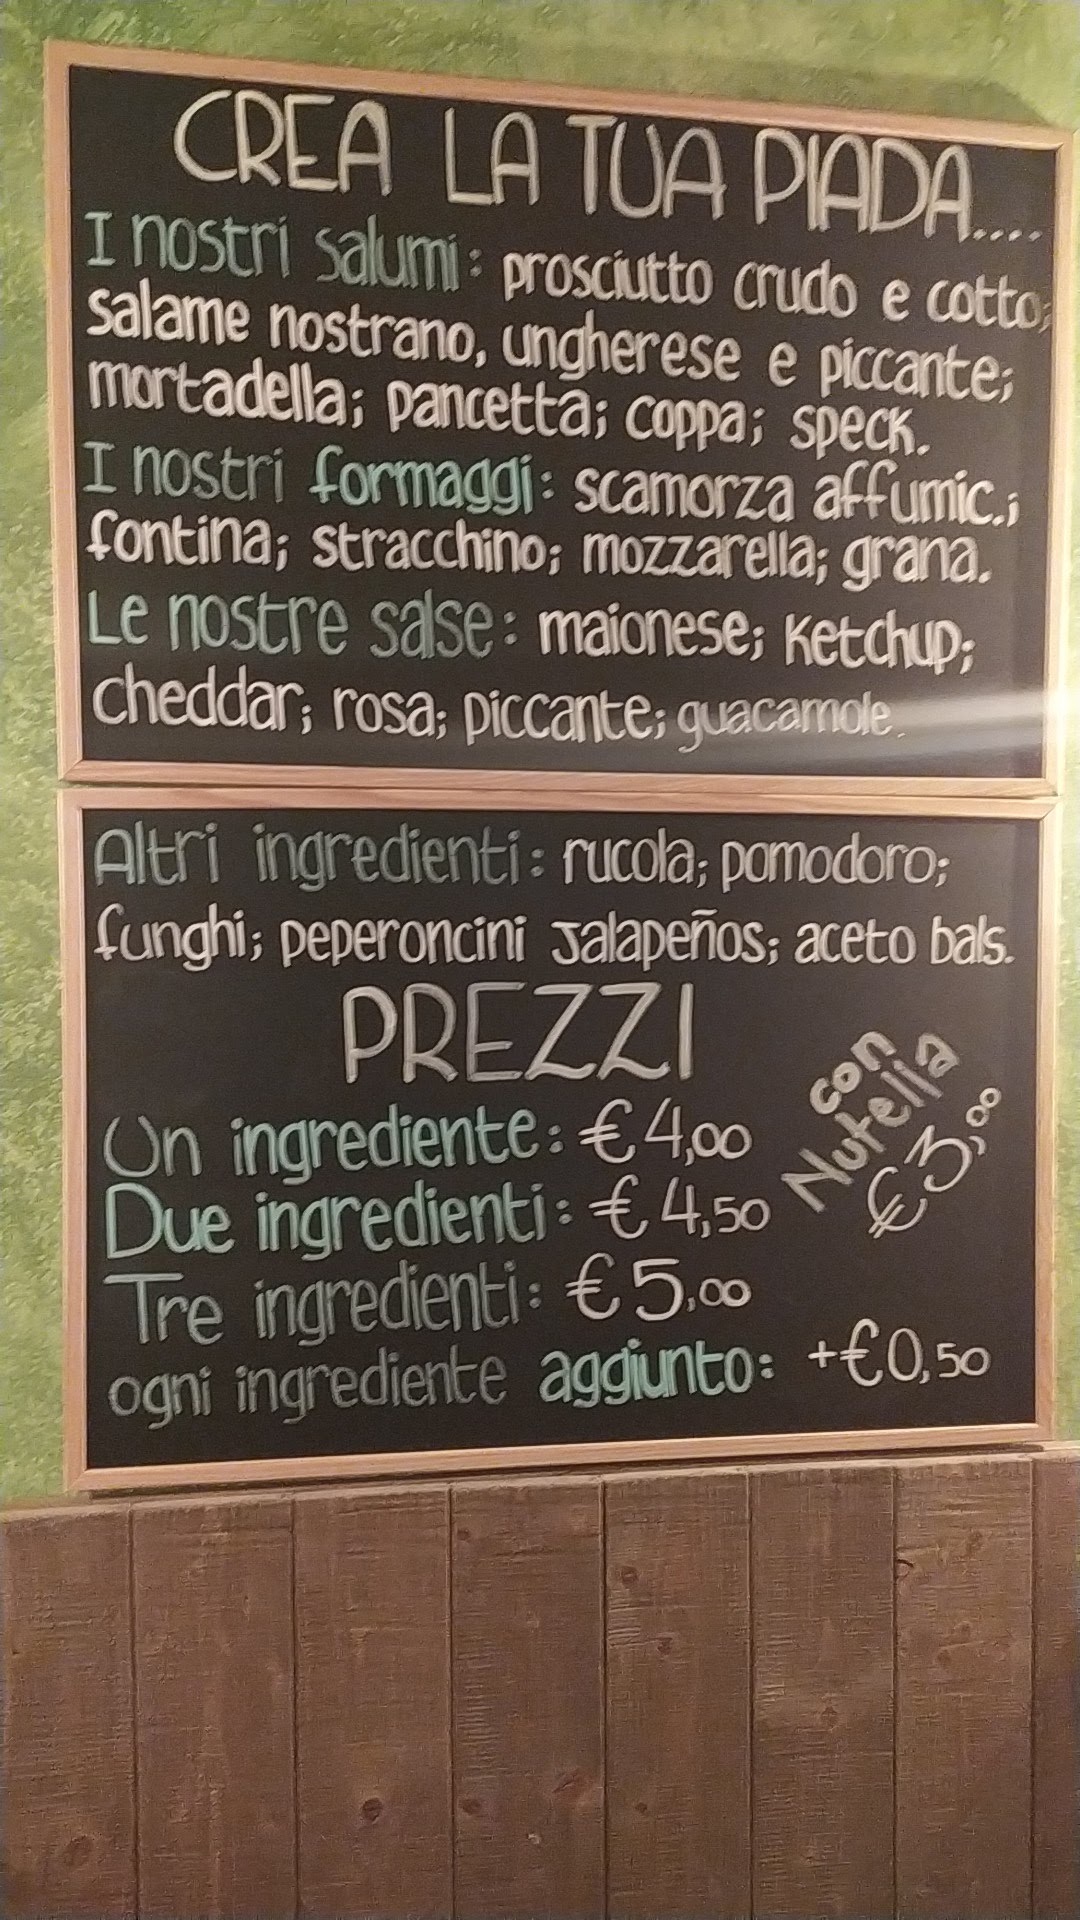 CREA LA TUA PIADA....
I nostri salumi: prosciutto crudo e cotto;
salame nostrano, ungherese e piccante;
mortadella; pancetta; coppa; speck.
I nostri formaggi: scamorza affumic.;
fontina; stracchino; mozzarella; grana.
Le nostre salse: maionese; ketchup;
cheddar; rosa; piccante; guacamole.
Altri ingredienti: rucola; pomodoro;
funghi; peperoncini Jalapeños; aceto bals.
PREZZI
Un ingrediente: €4,00
Due ingredienti: €4,50
Tre ingredienti: €5,00
ogni ingrediente aggiunto: +€0,50
con
Nutella
€3,00